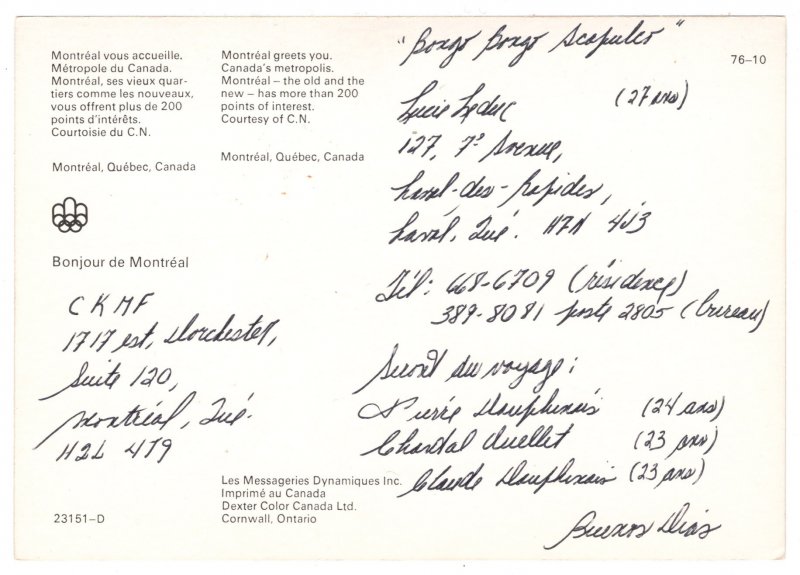 Montréal vous accueille.
Métropole du Canada.
Montréal, ses vieux quar-
tiers comme les nouveaux,
vous offrent plus de 200
points d'intérêts.
Courtoisie du C.N.
Montréal, Québec, Canada
Bonjour de Montréal
Montréal greets you.
Canada's metropolis.
Montréal – the old and the
new – has more than 200
points of interest.
Courtesy of C.N.
Montréal, Québec, Canada
CKMF
1717 est, Dorchester,
Suite 120,
Montréal, Qué.
H2L 4T9
23151–D
Les Messageries Dynamiques Inc.
Imprimé au Canada
Dexter Color Canada Ltd.
Cornwall, Ontario
76–10
"Bongo Bongo Acapulco"
Lucie Leduc (27 ans)
127, 7e Avenue,
Laval-des-Rapides,
Laval, Qué. H7N 4J3
Tél: 668-6709 (résidence)
389-8081 poste 2805 (bureau)
Seront du voyage:
Pierre Dauphinais (24 ans)
Chantal Ouellet (23 ans)
Claude Dauphinais (23 ans)
Buenos Dias